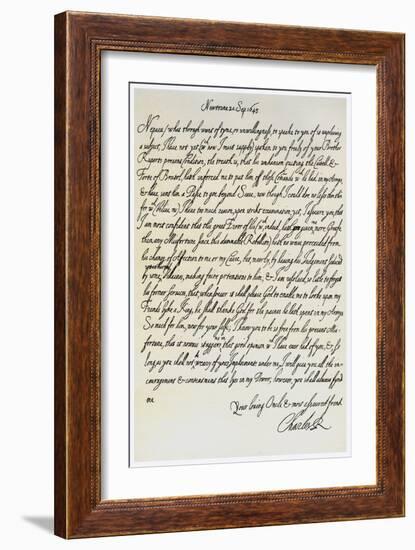 Newtowne 20 Sep: 1645
Nepueu / what through want of tyme, or unwillingness, to speake to you of so unpleasing
a subject, I have not yet (wch now I must supply) spoken to you freely of your Brother
Ruperts present Condition, the treuth is, that his unhansom quitting the Castell &
Forte of Bristol, hath inforced me to put him off those Comands wch he had in my Armys,
& have sent him a Passe to goe beyond Seas; now though I could doe no lesse then this
for wch (believe me) I have too much reason, upon strikt examination, yet, I assure you, that
I am most confident that this great Error of his, (wch indeed, hath given me more Griefe
then any Misfortune since this damnable Rebellion) hath no waies proceeded from
his change of Affection to me or my Cause, but meerly, by having his Judgement seduced
by some rotten harted villaines making faire pretentions to him, & I am resolved so litle to forget
his former services, that when ever it shall please God to enable me to looke upon my
Friends lyke a King, he shall thanke God for the paines he hath spent in my Armys
So much for him, now for your selfe; I know you to be so free from his present Mis-
fortune, that it nowais staggers that good opinion wch I have ever had of you, & so
long as you shall not weary of your Imployments under me, I will give you all the in-
couragement & contentment that lyes in my Power; however, you shall alwais fynd
me
Your loving Oncle & most asseured frend.
Charles R